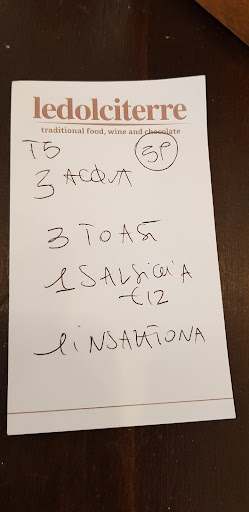 ledolciterre
traditional food, wine and chocolate
T5 5P
3 ACQUA
3 TOAST
1 SALSICCIA
€12
1 iNSALATONA